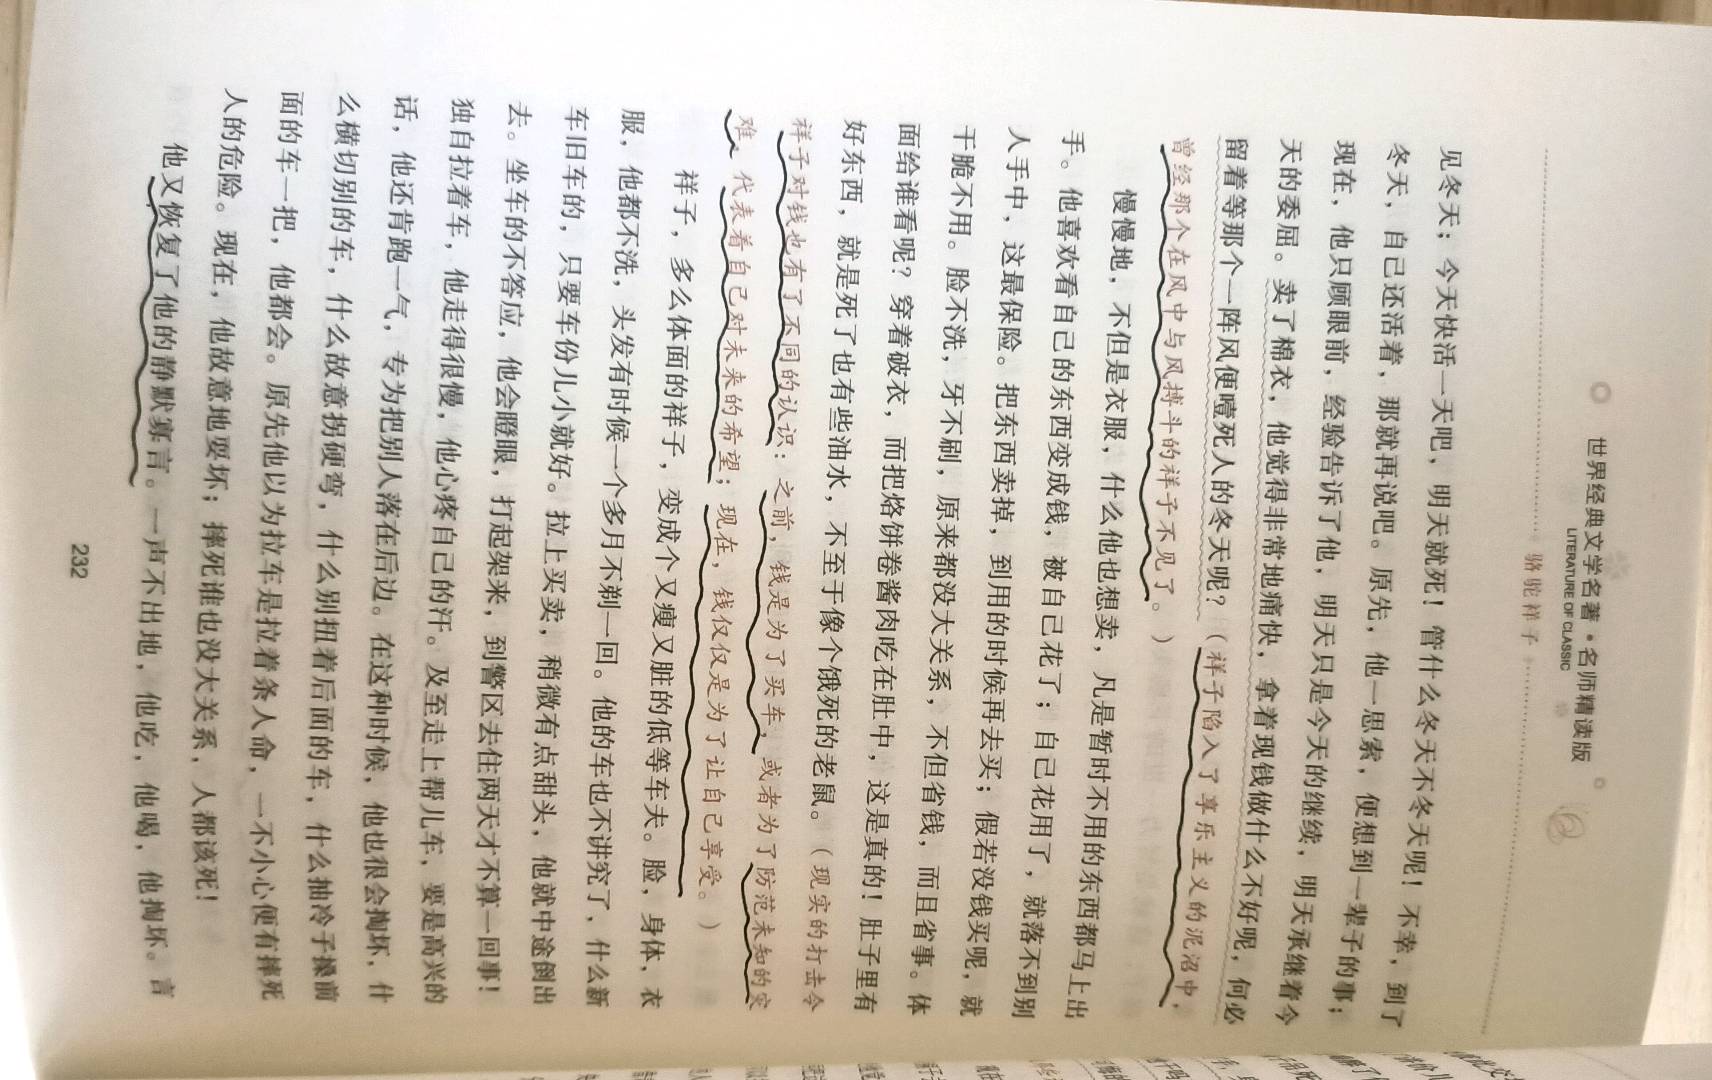 世界经典文学名著·名师精读版
LITERATURE OF CLASSIC
骆驼祥子
见冬天；今天快活一天吧，明天就死！管什么冬天不冬天呢！不幸，到了
冬天，自己还活着，那就再说吧。原先，他一思索，便想到一辈子的事；
现在，他只顾眼前，经验告诉了他，明天只是今天的继续，明天承继着今
天的委屈。卖了棉衣，他觉得非常地痛快，拿着现钱做什么不好呢，何必
留着等那个一阵风便噎死人的冬天呢？（祥子陷入了享乐主义的泥沼中，
曾经那个在风中与风搏斗的祥子不见了。）
慢慢地，不但是衣服，什么他也想卖，凡是暂时不用的东西都马上出
手。他喜欢看自己的东西变成钱，被自己花了；自己花用了，就落不到别
人手中，这最保险。把东西卖掉，到用的时候再去买；假若没钱买呢，就
干脆不用。脸不洗，牙不刷，原来都没大关系，不但省钱，而且省事。体
面给谁看呢？穿着破衣，而把烙饼卷酱肉吃在肚中，这是真的！肚子里有
好东西，就是死了也有些油水，不至于像个饿死的老鼠。（现实的打击令
祥子对钱也有了不同的认识：之前，钱是为了买车，或者为了防范未知的灾
难，代表着自己对未来的希望；现在，钱仅仅是为了让自己享受。）
祥子，多么体面的祥子，变成个又瘦又脏的低等车夫。脸，身体，衣
服，他都不洗，头发有时候一个多月不剃一回。他的车也不讲究了，什么新
车旧车的，只要车份儿小就好。拉上买卖，稍微有点甜头，他就中途倒出
去。坐车的不答应，他会瞪眼，打起架来，到警区去住两天才不算一回事！
独自拉着车，他走得很慢，他心疼自己的汗。及至走上帮儿车，要是高兴的
话，他还肯跑一气，专为把别人落在后边。在这种时候，他也很会掏坏，什
么横切别的车，什么故意拐硬弯，什么别扭着后面的车，什么抽冷子搡前
面的车一把，他都会。原先他以为拉车是拉着条人命，一不小心便有摔死
人的危险。现在，他故意地耍坏；摔死谁也没大关系，人都该死！
他又恢复了他的静默寡言。一声不出地，他吃，他喝，他掏坏。言
232